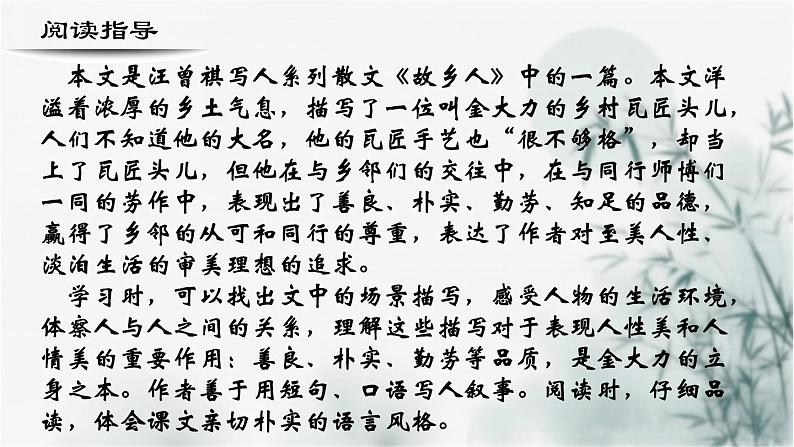 阅读指导
本文是汪曾祺写人系列散文《故乡人》中的一篇。本文洋
溢着浓厚的乡土气息，描写了一位叫金大力的乡村瓦匠头儿，
人们不知道他的大名，他的瓦匠手艺也“很不够格”，却当
上了瓦匠头儿，但他在与乡邻们的交往中，在与同行师博们
一同的劳作中，表现出了善良、朴实、勤劳、知足的品德，
赢得了乡邻的从可和同行的尊重，表达了作者对至美人性、
淡泊生活的审美理想的追求。
学习时，可以找出文中的场景描写，感受人物的生活环境，
体察人与人之间的关系，理解这些描写对于表现人性美和人
情美的重要作用；善良、朴实、勤劳等品质，是金大力的立
身之本。作者善于用短句、口语写人叙事。阅读时，仔细品
读，体会课文亲切朴实的语言风格。